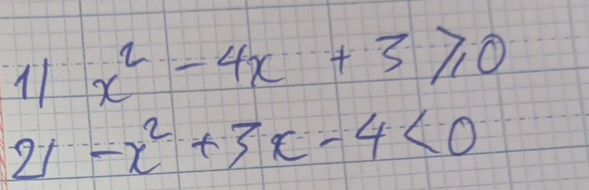 1) x² - 4x + 3 ⩾ 0
2) -x² + 3x - 4 < 0